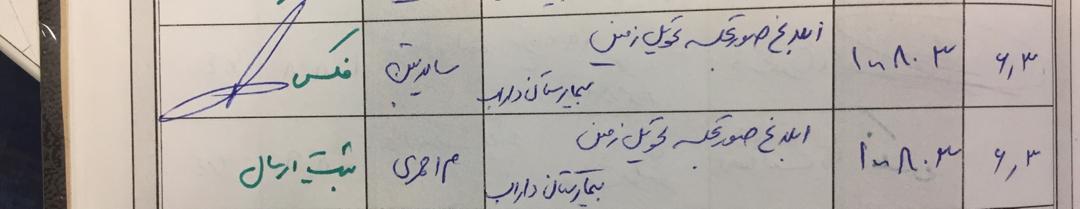 ۶٫۳ ۱۰۸۰۳ ابلاغ صورتجلسه تحویل زمین
بیمارستان داراب
فکس
۶٫۳ ۱۰۸۰۳ ابلاغ صورتجلسه تحویل زمین
بیمارستان داراب
م احمدی ثبت ارسال